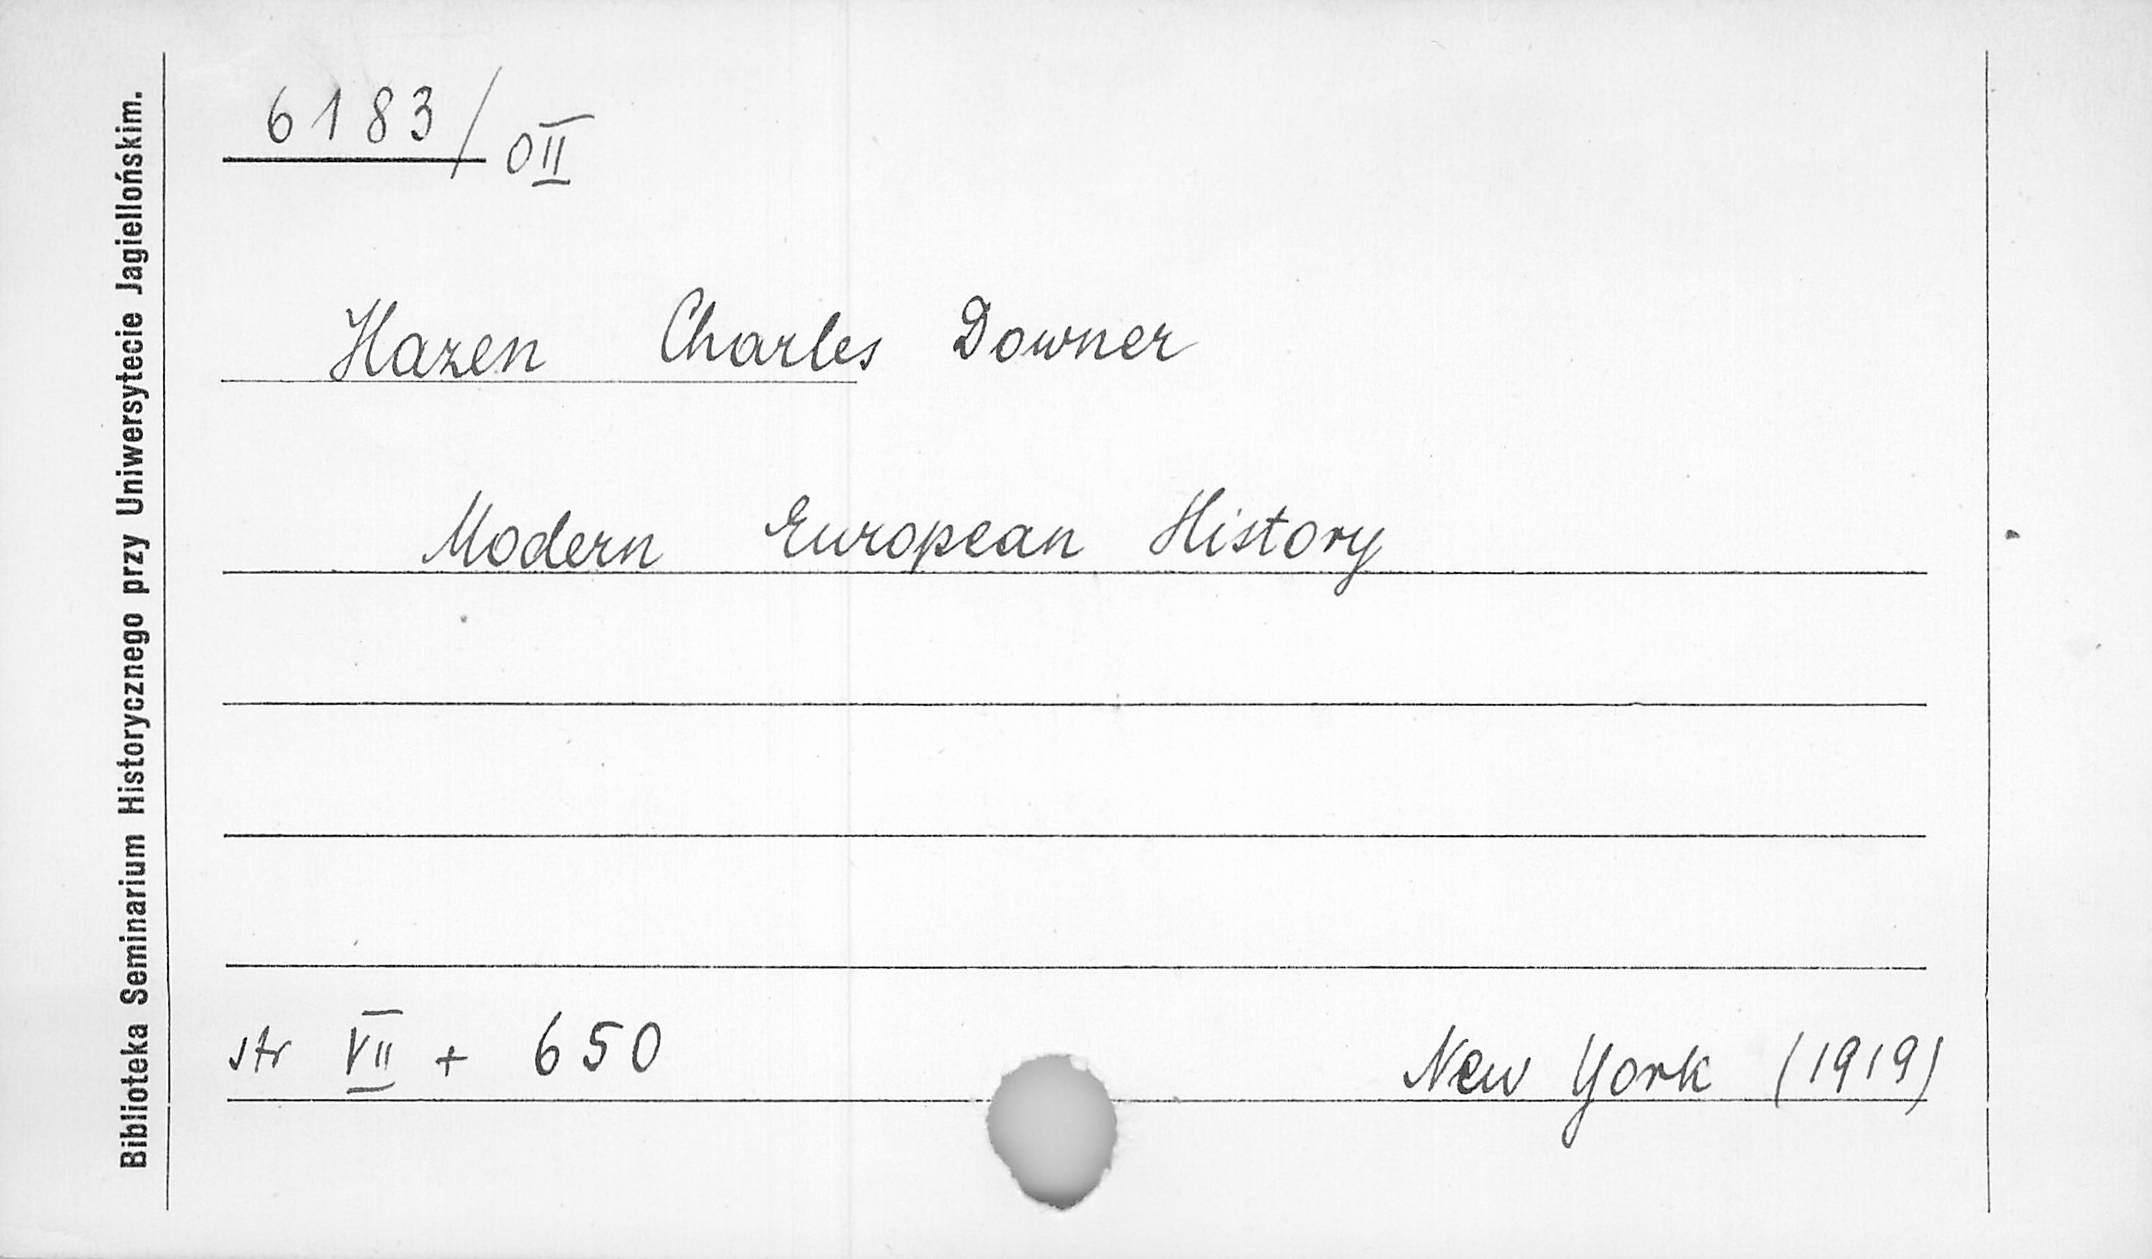 Biblioteka Seminarium Historycznego przy Uniwersytecie Jagiellońskim.
6183/OII
Hazen Charles Downer
Modern European History
str VII + 650
New York (1919)